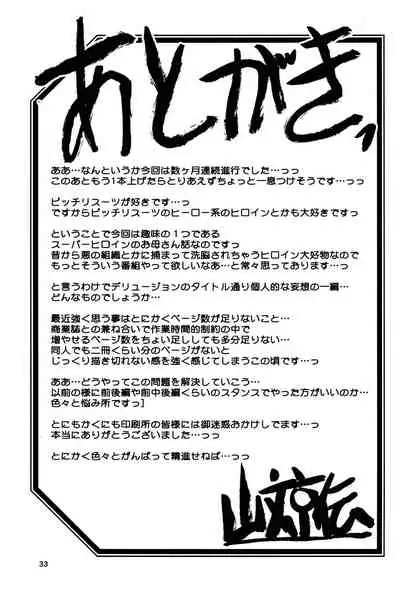 あとがきっ
ああ…なんというか今回は数ヶ月連続進行でした…っっ
このあともう1本上げたらとりあえずちょっと一息つけそうです…っっ
ピッチリスーツが好きです…っ
ですからピッチリスーツのヒーロー系のヒロインとかも大好きですっ
ということで今回は趣味の1つである
スーパーヒロインのお母さん話なのですっ
昔から悪の組織とかに捕まって洗脳されちゃうヒロイン大好物なので
もっとそういう番組やって欲しいなあ…と常々思ってあります…っっ
と言うわけでデリュージョンのタイトル通り個人的な妄想の一編…
どんなものでしょうか…
最近強く思う事はとにかくページ数が足りないこと…
商業誌との兼ね合いで作業時間的制約の中で
増やせるページ数をちょい足ししても多分足りない…
同人でも二冊くらい分のページがないと
じっくり描き切れない感を強く感じてしまうこの頃です…っ
ああ…どうやってこの問題を解決していこう…
以前の様に前後編や前中後編くらいのスタンスでやった方がいいのか…
色々と悩み所ですっ]
とにもかくにも印刷所の皆様には御迷惑おかけしてます…っ
本当にありがとうございました…っっ
とにかく色々とがんばって精進せねば…っっ
山文京伝
33